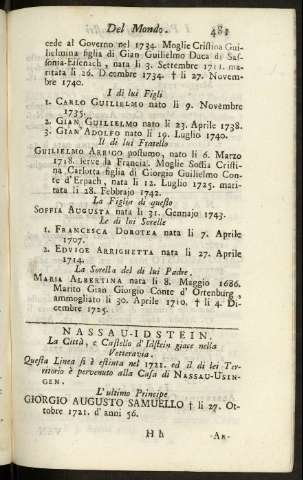 Del Mondo. 481
cede al Governo nel 1734. Moglie Cristina Gui-
lielmina figlia di Gian Guilielmo Duca di Sas-
sonia-Eisenach, nata li 3. Settembre 1711. ma-
ritata li 26. Dicembre 1734. † li 27. Novem-
bre 1740.
I di lui Figli
1. CARLO GUILIELMO nato li 9. Novembre
1735.
2. GIAN GUILIELMO nato li 23. Aprile 1738.
3. GIAN ADOLFO nato li 19. Luglio 1740.
Il di lui Fratello
GUILIELMO ARRIGO postumo, nato li 6. Marzo
1718. serve la Francia. Moglie Soffia Cristi-
na Carlotta figlia di Giorgio Guilielmo Con-
te d'Erpach, nata li 12. Luglio 1725. mari-
tata li 28. Febbrajo 1742.
La Figlia di questo
SOFFIA AUGUSTA nata li 31. Gennajo 1743.
Le di lui Sorelle
1. FRANCESCA DOROTEA nata li 7. Aprile
1707.
2. EDVIGE ARRIGHETTA nata li 27. Aprile
1714.
La Sorella del di lui Padre.
MARIA ALBERTINA nata li 8. Maggio 1686.
Marito Gian Giorgio Conte d' Ortenburg,
ammogliato li 30. Aprile 1710. † li 4. Di-
cembre 1725.
NASSAU-IDSTEIN.
La Città, e Castello d'Idstein giace nella
Vetteravia.
Questa Linea si è estinta nel 1721. ed il di lei Ter-
ritorio è pervenuto alla Casa di NASSAU-USIN-
GEN.
L'ultimo Principe
GIORGIO AUGUSTO SAMUELLO † li 27. Ot-
tobre 1721. d'anni 56.
H h -AR-